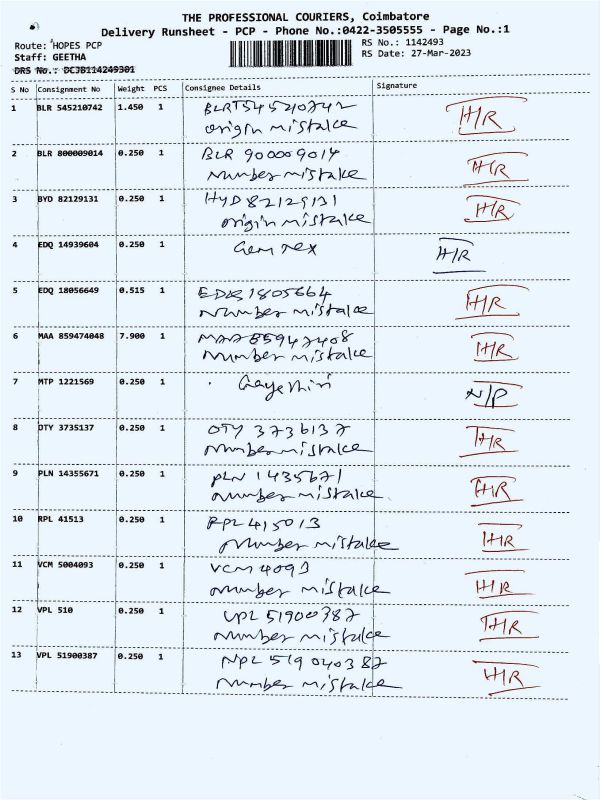 THE PROFESSIONAL COURIERS, Coimbatore
Delivery Runsheet - PCP - Phone No.:0422-3505555 - Page No.:1
Route: HOPES PCP
RS No.: 1142493
Staff: GEETHA
RS Date: 27-Mar-2023
DRS No.: DCJB114249301
S No Consignment No Weight PCS Consignee Details Signature
1 BLR 545210742 1.450 1 BLRT54520742 IHR
origin mistake
2 BLR 800009014 0.250 1 BLR 900009014 IHR
Number mistake
3 BYD 82129131 0.250 1 HYD 82129131 IHR
origin mistake
4 EDQ 14939604 0.250 1 Gem Tex IHR
5 EDQ 18056649 0.515 1 EDQ 1805664 IHR
Number mistake
6 MAA 859474048 7.900 1 MAA 85947408 IHR
Number mistake
7 MTP 1221569 0.250 1 Gayethiri N/P
8 OTY 3735137 0.250 1 OTY 3736137 IHR
Number mistake
9 PLN 14355671 0.250 1 PLN 1435671 IHR
Number mistake
10 RPL 41513 0.250 1 RPL 415013 IHR
Number mistake
11 VCM 5004093 0.250 1 VCM 4093 IHR
Number mistake
12 VPL 510 0.250 1 VPL 51900387 IHR
Number mistake
13 VPL 51900387 0.250 1 NPL 519040387 IHR
Number mistake